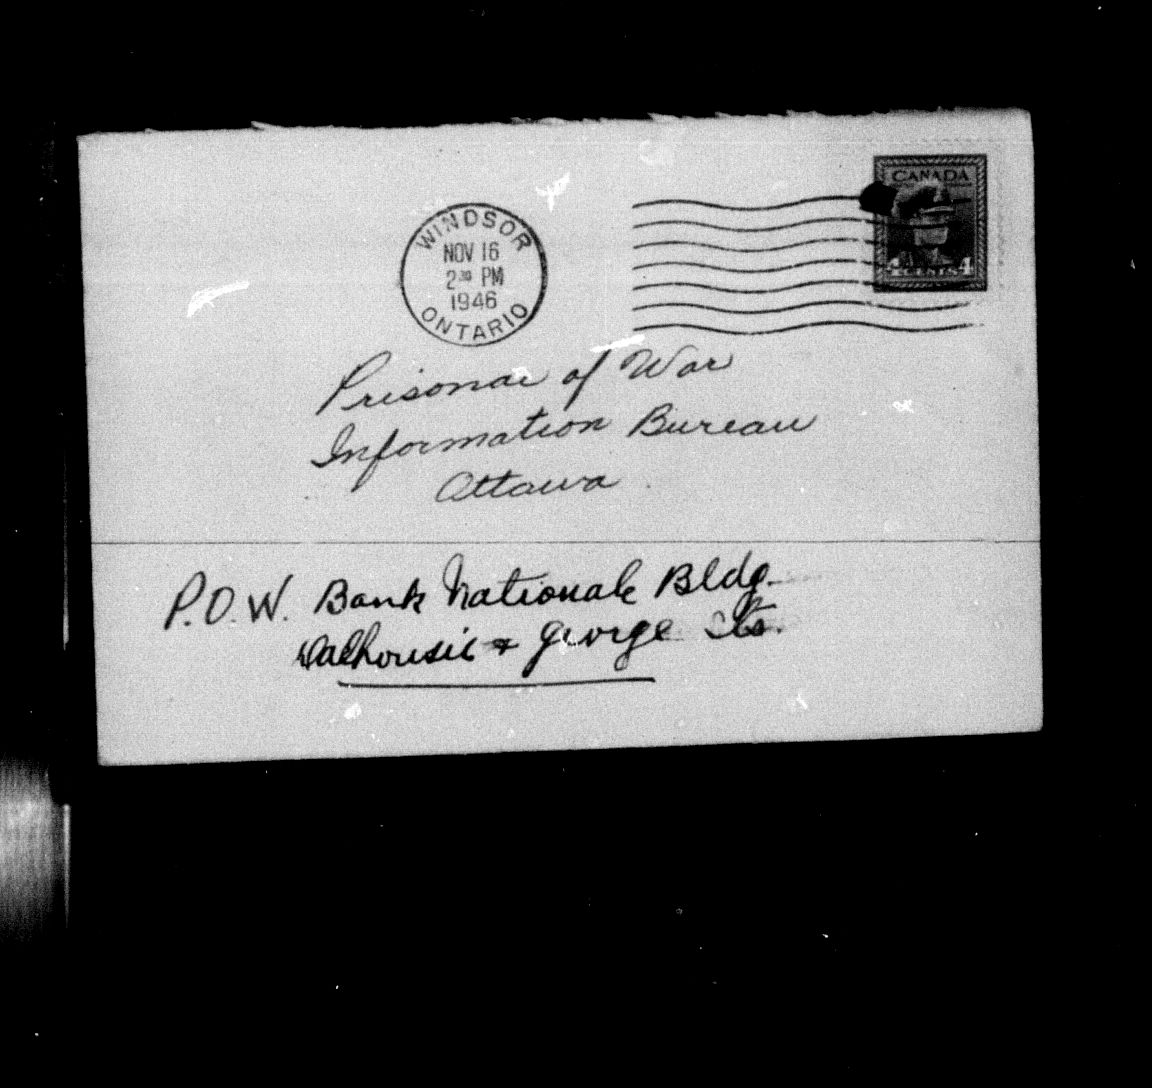 WINDSOR
NOV 16
2 30 PM
1946
ONTARIO
CANADA
4 CENTS 4
Prisonar of War
Information Bureau
Ottawa
P.O.W. Bank Nationale Bldg.
Dalhousie + George Sts.